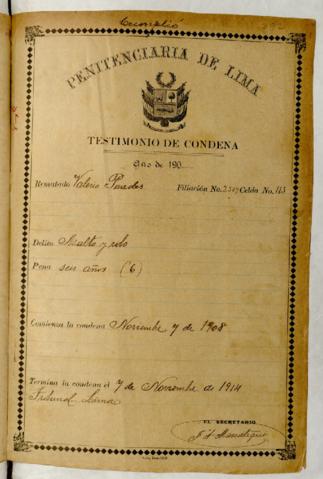 Cumplió
PENITENCIARIA DE LIMA
TESTIMONIO DE CONDENA
Año de 190
Rematado Valerio Paredes Filiación No. Celda No. 113
Delito Asalto y robo
Pena seis años (6)
Comienza la condena Noviembre 7 de 1908
Termina la condena el 7 de Noviembre de 1914
Tribunal Lima
EL SECRETARIO